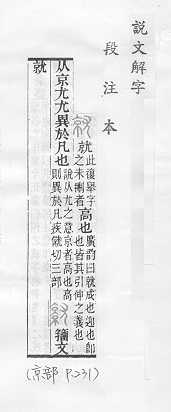 說文解字
段注本
就高也
此復舉字之未刪者
廣韵曰就成也迎也即也皆其引伸之義也
从京尤尤異於凡也
說从尤之意京者高也高則異於凡疾僦切三部
籒文就
(京部 P.231)